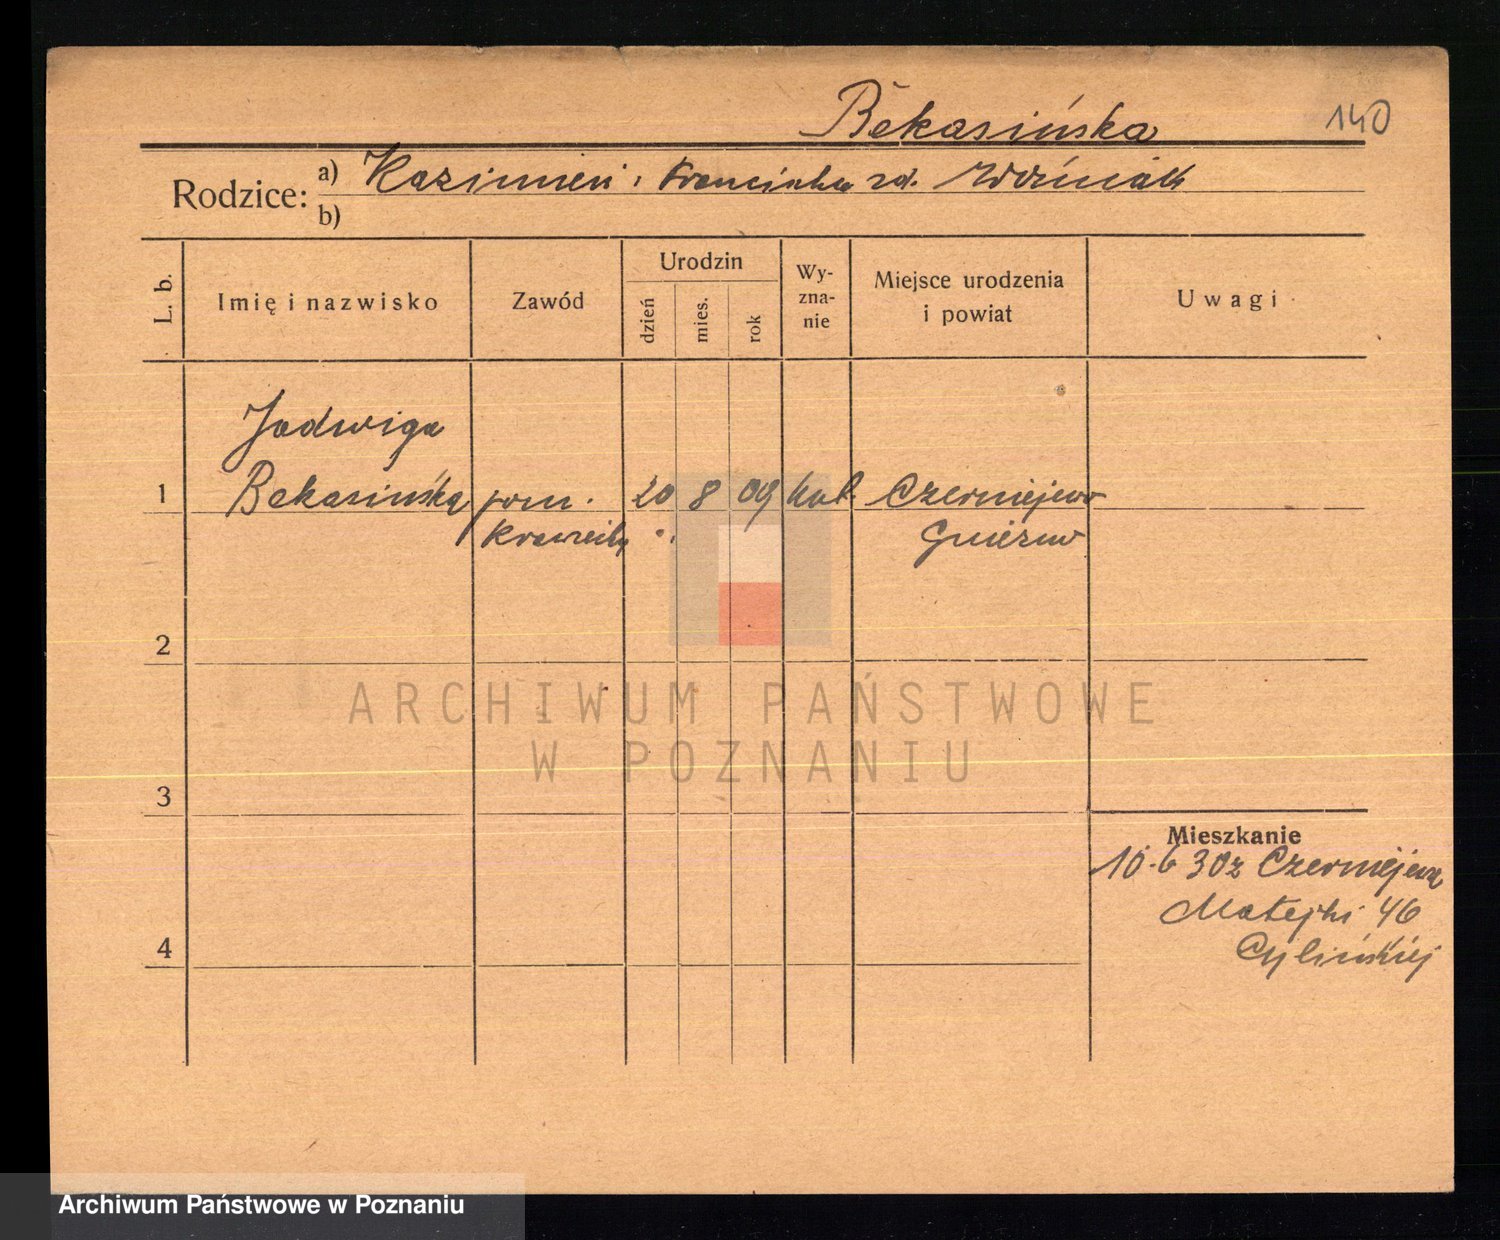 Bekasińska 140
Rodzice: a) Kazimierz i Franciszka zd. Woźniak
b)
L. b. Imię i nazwisko Zawód Urodzin dzień mies. rok Wyznanie Miejsce urodzenia i powiat Uwagi
Jadwiga
1 Bekasińska pom. 20 8 09 kat. Czerniejewo
krawiecka Gniezno
2
ARCHIWUM PAŃSTWOWE
W POZNANIU
3
Mieszkanie
10.6 30 z Czerniejewa
Matejki 46
4
Archiwum Państwowe w Poznaniu